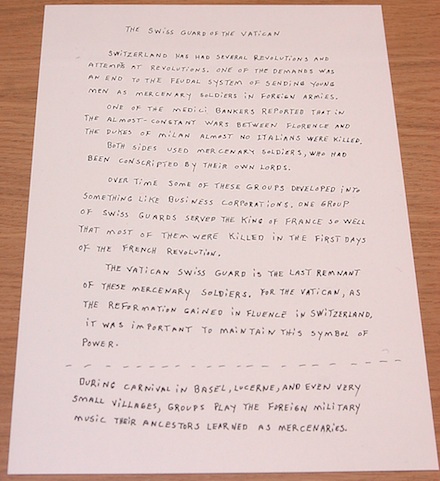 THE SWISS GUARD OF THE VATICAN
SWITZERLAND HAS HAD SEVERAL REVOLUTIONS AND
ATTEMPS AT REVOLUTIONS. ONE OF THE DEMANDS WAS
AN END TO THE FEUDAL SYSTEM OF SENDING YOUNG
MEN AS MERCENARY SOLDIERS IN FOREIGN ARMIES.
ONE OF THE MEDICI BANKERS REPORTED THAT IN
THE ALMOST-CONSTANT WARS BETWEEN FLORENCE AND
THE DUKES OF MILAN ALMOST NO ITALIANS WERE KILLED.
BOTH SIDES USED MERCENARY SOLDIERS, WHO HAD
BEEN CONSCRIPTED BY THEIR OWN LORDS.
OVER TIME SOME OF THESE GROUPS DEVELOPED INTO
SOMETHING LIKE BUSINESS CORPORATIONS. ONE GROUP
OF SWISS GUARDS SERVED THE KING OF FRANCE SO WELL
THAT MOST OF THEM WERE KILLED IN THE FIRST DAYS
OF THE FRENCH REVOLUTION.
THE VATICAN SWISS GUARD IS THE LAST REMNANT
OF THESE MERCENARY SOLDIERS. FOR THE VATICAN, AS
THE REFORMATION GAINED IN FLUENCE IN SWITZERLAND,
IT WAS IMPORTANT TO MAINTAIN THIS SYMBOL OF
POWER.
DURING CARNIVAL IN BASEL, LUCERNE, AND EVEN VERY
SMALL VILLAGES, GROUPS PLAY THE FOREIGN MILITARY
MUSIC THEIR ANCESTORS LEARNED AS MERCENARIES.